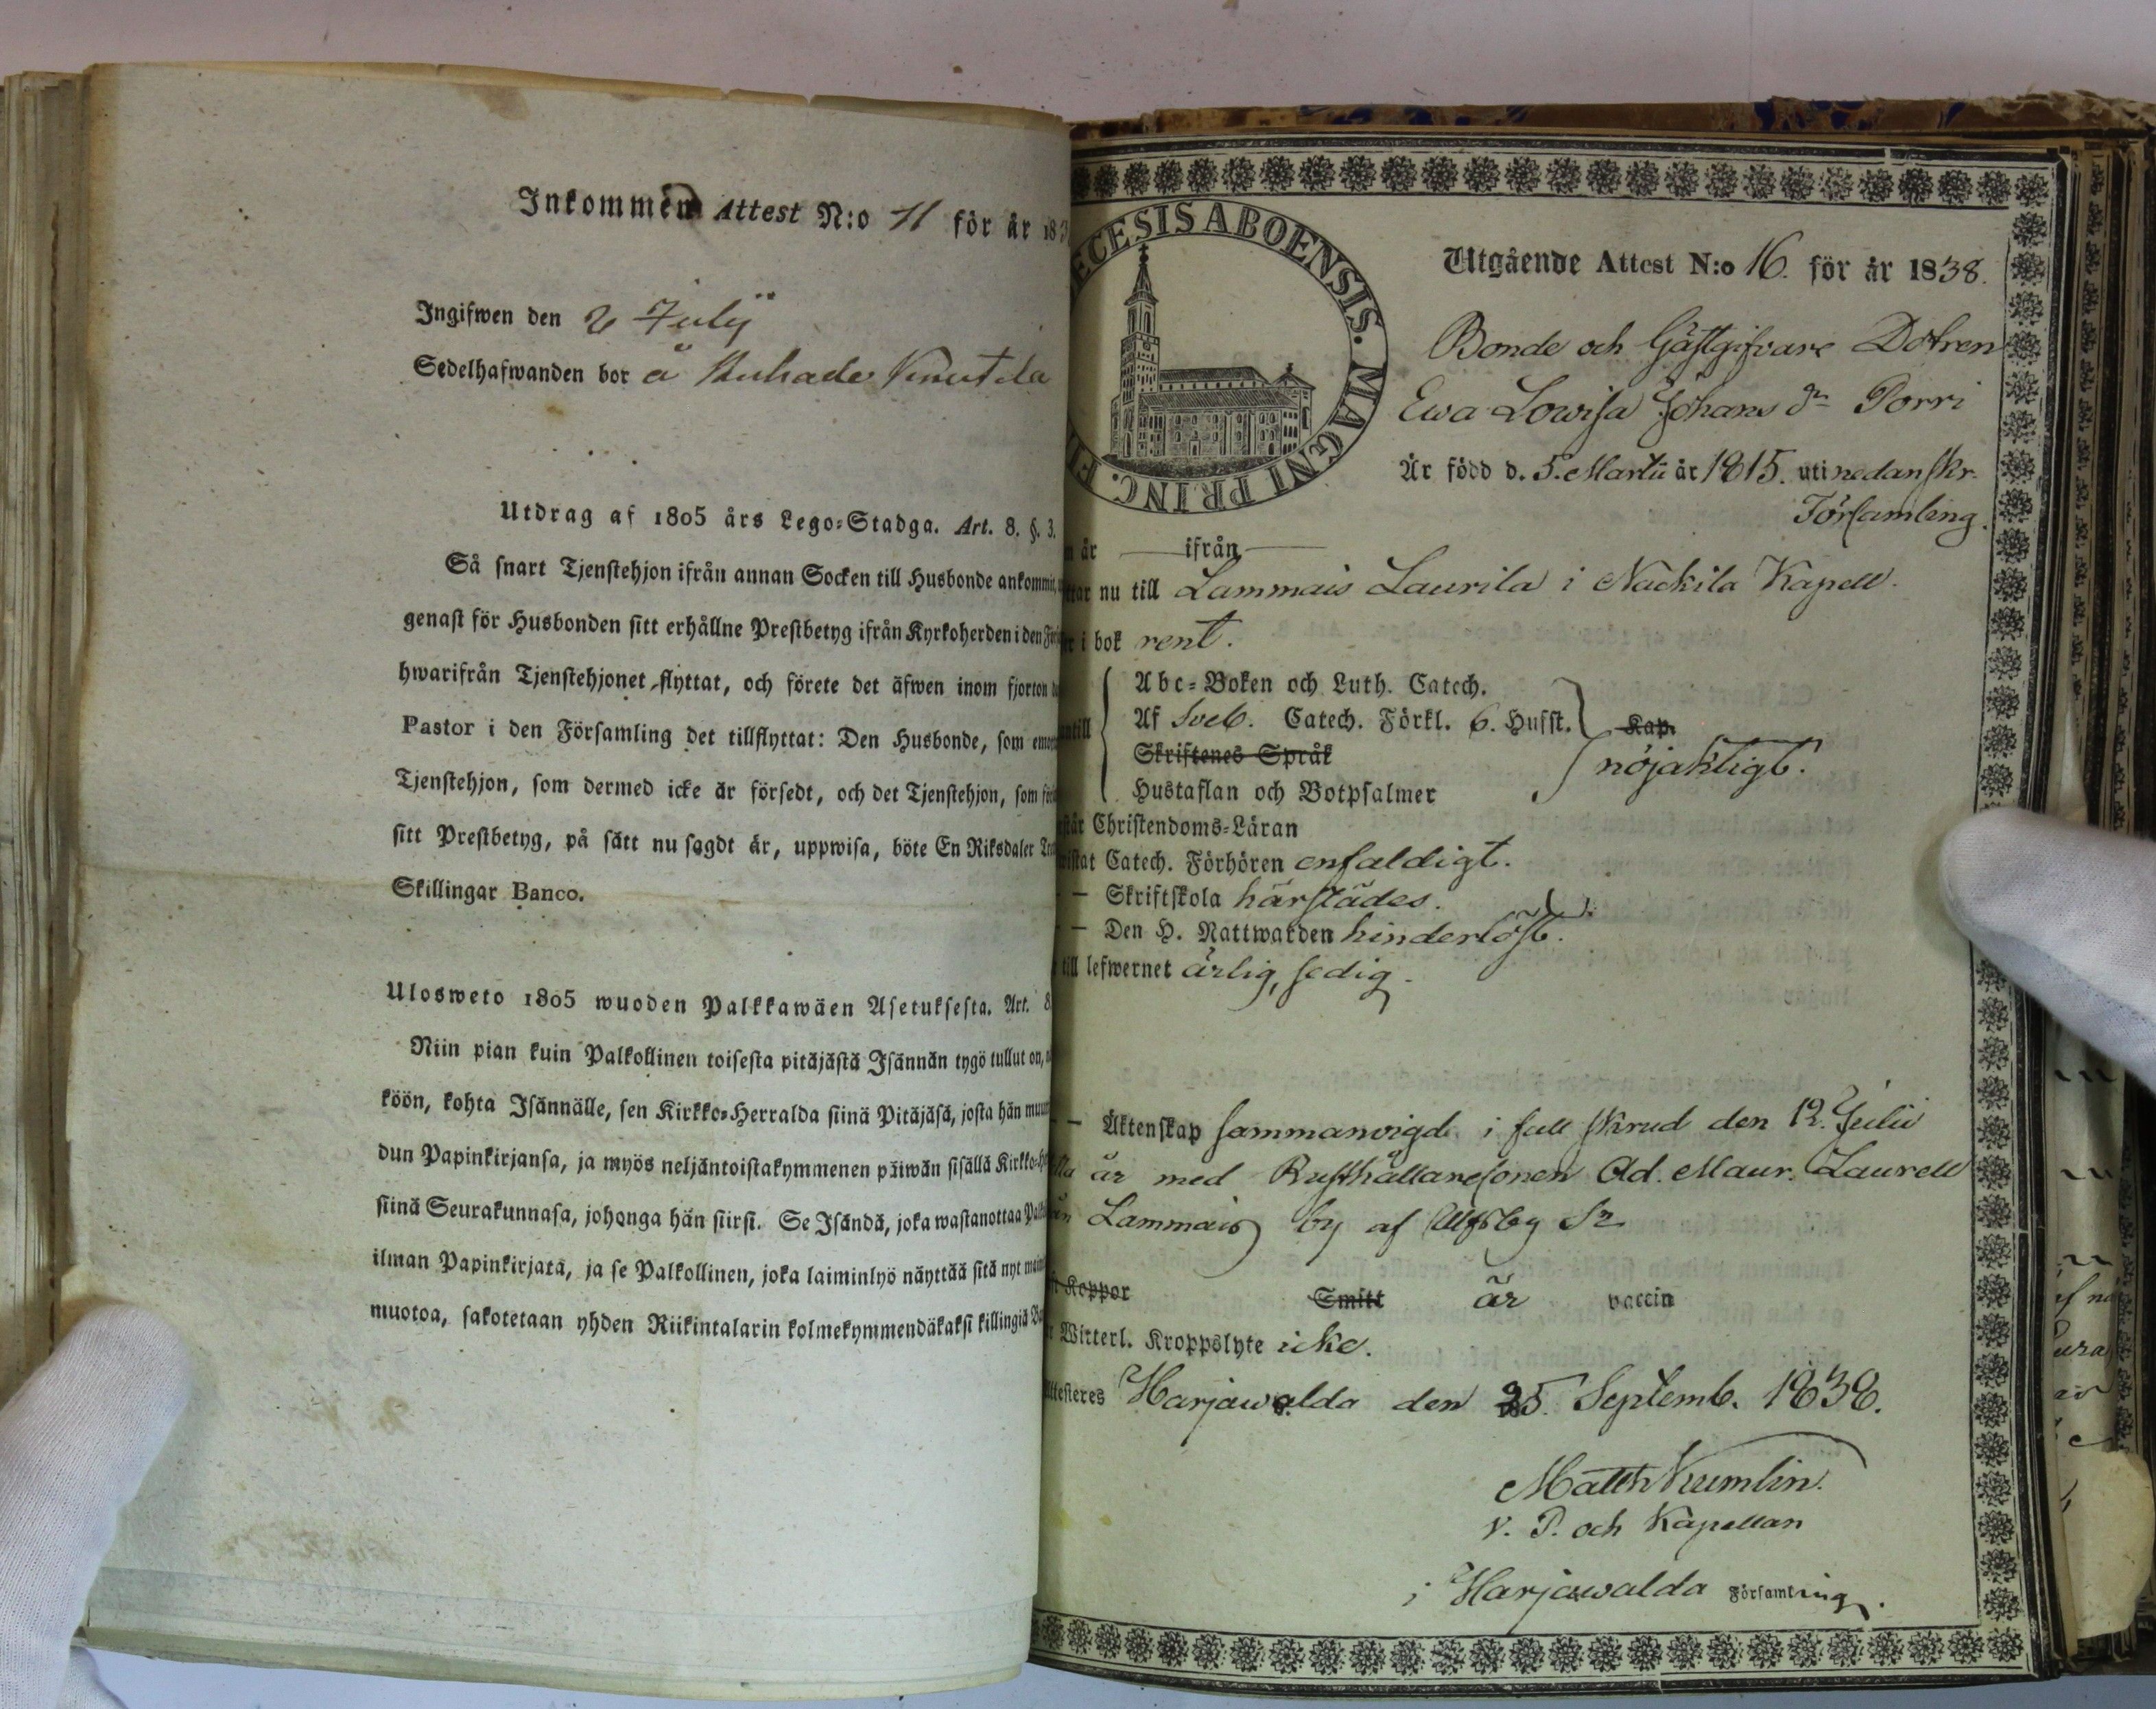 Inkommen Attest N:o 11 för år 183
Ingifwen den 2 Julÿ
Sedelhafwanden bor å Knutila
Utdrag af 1805 års Lego-Stadga. Art. 8. §. 3.
Så snart Tjenstehjon ifrån annan Socken till Husbonde ankommit,
genast för Husbonden sitt erhållne Prestbetyg ifrån Kyrkoherden i den
hwarifrån Tjenstehjonet flyttat, och förete det äfwen inom fjorton
Pastor i den Församling det tillflyttat: Den Husbonde, som
Tjenstehjon, som dermed icke är försedt, och det Tjenstehjon, som
sitt Prestbetyg, på sätt nu sagdt är, uppwisa, böte En Riksdaler
Skillingar Banco.
Ulosweto 1805 wuoden Palkkawäen Asetuksesta. Art. 8
Niin pian kuin Palkollinen toisesta pitäjästä Isännän tygö tullut on,
köön, kohta Isännälle, sen Kirkko-Herralda siinä Pitäjäsä, josta hän
dun Papinkirjansa, ja myös neljäntoistakymmenen päiwän sisällä
siinä Seurakunnasa, johonga hän siirsi. Se Isändä, joka wastanottaa
ilman Papinkirjata, ja se Palkollinen, joka laiminlyö näyttää sitä nyt
muotoa, sakotetaan yhden Riikintalarin kolmekymmendäkaksi killingiä
ECESIS ABOENSIS. MAGNI PRINC. FI
Utgående Attest N:o 16. för år 1838.
Bonde och Gästgifvare Dotren
Ewa Lowisa Johans dr Porri
Är född d. 5. Martii år 1815. uti nedanskr.
Församling.
år — ifrån —
nu till Lammais Laurila i Nackila Kapell.
i bok rent.
Abc-Boken och Luth. Catech.
Af Sveb. Catech. Förkl. 6. Husst. Kap.
Skriftenes Språk
nöjaktigt.
Hustaflan och Botpsalmer
Christendoms-Läran
Catech. Förhören enfaldigt.
— Skriftskola härstädes.
— Den H. Nattwarden hinderlöst.
till lefwernet ärlig, sedig.
— Äktenskap sammanvigd i full skrud den 12. Julii
år med Rusthållaresonen Ad. Maur. Laurell
Lammais by af Ulfsby Sn
Koppor Smitt är vaccin
Witterl. Kroppslyte icke.
Harjawalda den 25. Septemb. 1838.
Matth Kumlin.
V. P. och Kapellan
i Harjawalda Församling.